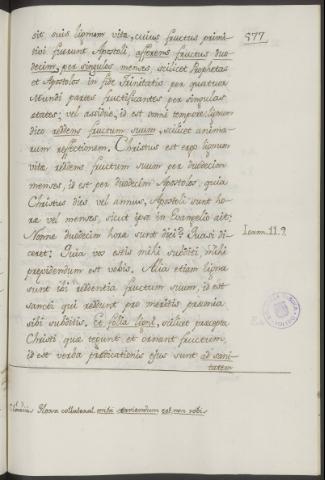 577
sit suis lignum vitæ, cuius fructus primi
tivi fuerunt Apostoli, afferens fructus duo
decim per singulos menses, scilicet Prophetas
et Apostolos in fide Trinitatis per quatuor
Mundi partes fructificantes per singulas
ætates; vel assidue, id est omni tempore lignum
dico reddens fructum suum, scilicet anima
rum refectionem. Christus est ergo lignum
vitæ reddens fructum suum per duodecim
menses, id est per duodecim Apostolos, quia
Christus dies vel annus, Apostoli sunt ho
ræ vel menses, sicut ipse in Evangelio ait:
Nonne duodecim horæ sunt diei? Quasi di
Ioann. 11. 9.
ceret: Quia vos estis mihi subditi, mihi
est vobis. Alia etiam ligna
sunt ibi reddentia fructum suum, id est
sancti qui reddunt pro meritis præmia
sibi subditis. Et folia ligni, scilicet præcepta
Christi quæ tegunt et ornant fructum,
id est verba prædicationis ejus sunt ad sani
tatem
collateral